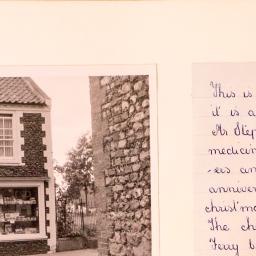 This is
it is a
Mr Step
medicin
-es an
anniver
christma
The ch
Ferry b